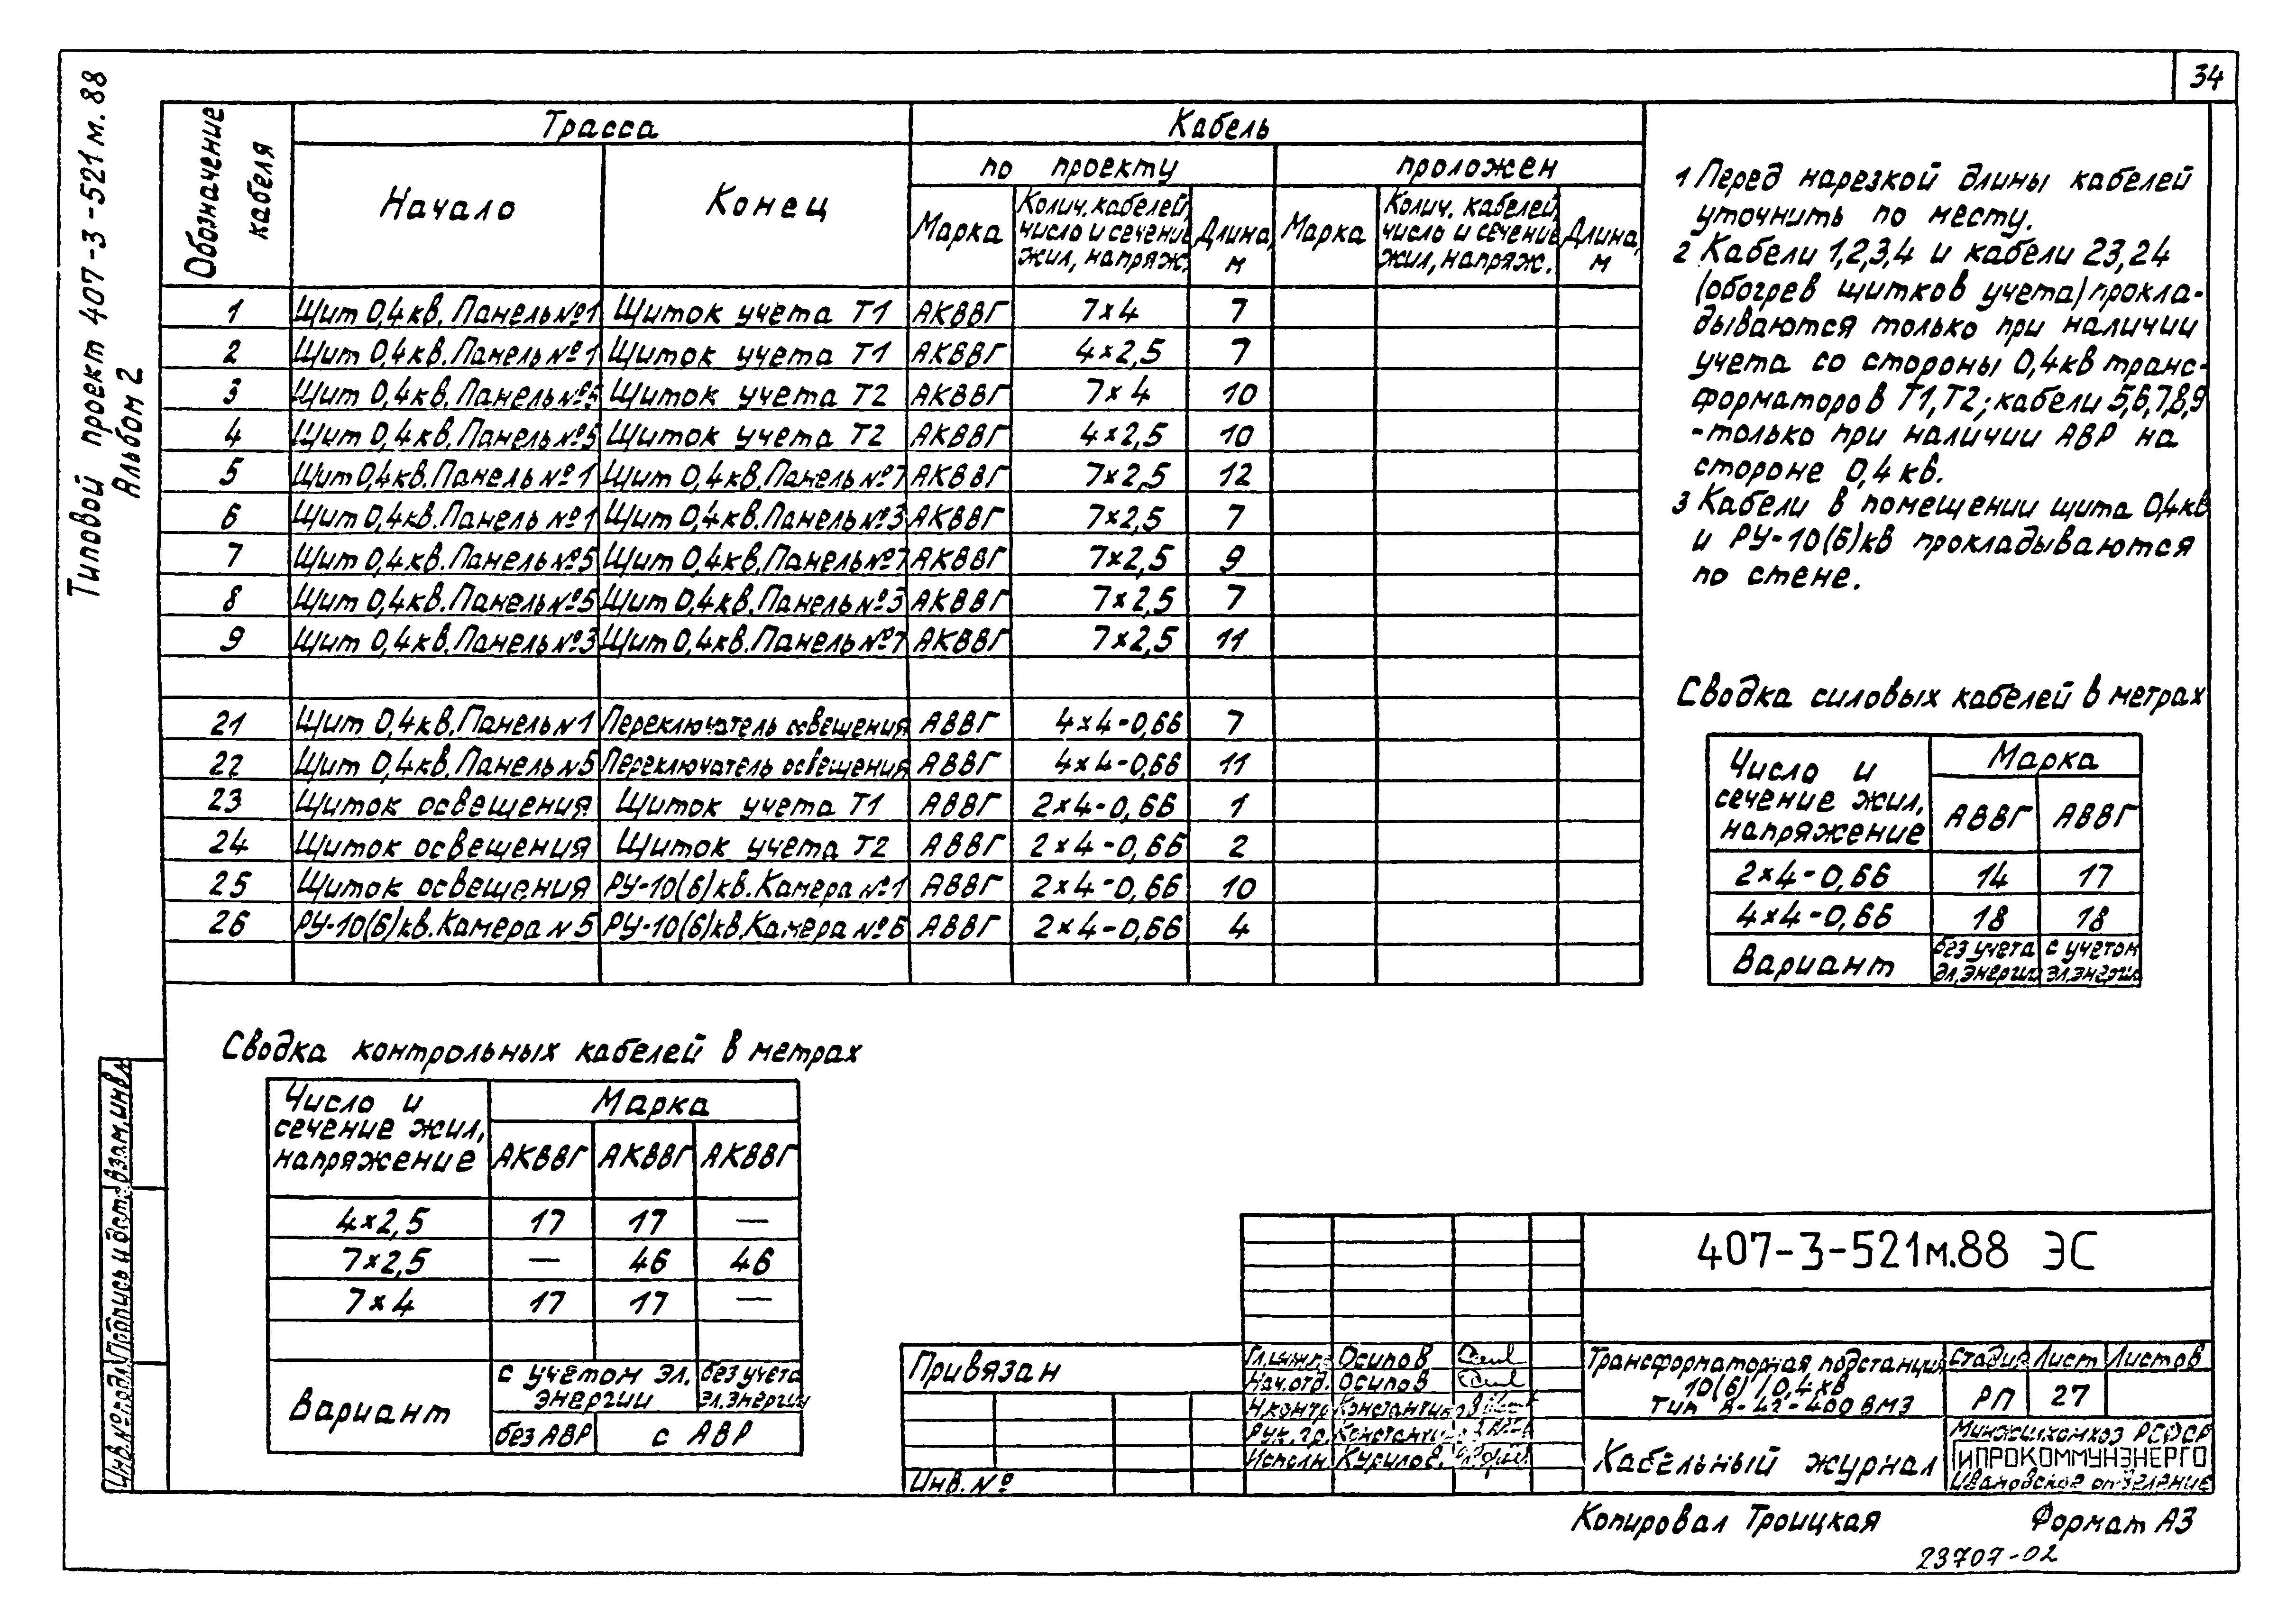 34
Типовой проект 407-3-521м.88
Альбом 2
Обозначение кабеля
Трасса
Кабель
по проекту
проложен
Начало
Конец
Марка
Колич. кабелей, число и сечение жил, напряж.
Длина, м
Марка
Колич. кабелей, число и сечение жил, напряж.
Длина, м
1 Щит 0,4кв. Панель №1 Щиток учета Т1 АКВВГ 7×4 7
2 Щит 0,4кв. Панель №1 Щиток учета Т1 АКВВГ 4×2,5 7
3 Щит 0,4кв. Панель №5 Щиток учета Т2 АКВВГ 7×4 10
4 Щит 0,4кв. Панель №5 Щиток учета Т2 АКВВГ 4×2,5 10
5 Щит 0,4кв. Панель №1 Щит 0,4кв. Панель №7 АКВВГ 7×2,5 12
6 Щит 0,4кв. Панель №1 Щит 0,4кв. Панель №3 АКВВГ 7×2,5 7
7 Щит 0,4кв. Панель №5 Щит 0,4кв. Панель №7 АКВВГ 7×2,5 9
8 Щит 0,4кв. Панель №5 Щит 0,4кв. Панель №3 АКВВГ 7×2,5 7
9 Щит 0,4кв. Панель №3 Щит 0,4кв. Панель №7 АКВВГ 7×2,5 11
21 Щит 0,4кв. Панель №1 Переключатель освещения АВВГ 4×4-0,66 7
22 Щит 0,4кв. Панель №5 Переключатель освещения АВВГ 4×4-0,66 11
23 Щиток освещения Щиток учета Т1 АВВГ 2×4-0,66 1
24 Щиток освещения Щиток учета Т2 АВВГ 2×4-0,66 2
25 Щиток освещения РУ-10(6)кв. Камера №1 АВВГ 2×4-0,66 10
26 РУ-10(6)кв. Камера №5 РУ-10(6)кв. Камера №6 АВВГ 2×4-0,66 4
1 Перед нарезкой длины кабелей
уточнить по месту.
2 Кабели 1,2,3,4 и кабели 23,24
(обогрев щитков учета) прокла-
дываются только при наличии
учета со стороны 0,4кв транс-
форматоров Т1,Т2; кабели 5,6,7,8,9
-только при наличии АВР на
стороне 0,4кв.
3 Кабели в помещении щита 0,4кв
и РУ-10(6)кв прокладываются
по стене.
Сводка силовых кабелей в метрах
Число и сечение жил, напряжение
Марка
АВВГ АВВГ
2×4-0,66 14 17
4×4-0,66 18 18
Вариант без учета эл.энергии с учетом эл.энергии
Сводка контрольных кабелей в метрах
Число и сечение жил, напряжение
Марка
АКВВГ АКВВГ АКВВГ
4×2,5 17 17 —
7×2,5 — 46 46
7×4 17 17 —
Вариант
с учетом эл. энергии
без учета эл.энергии
без АВР
с АВР
Взам.инв.№
Подпись и дата
Инв.№подл.
Привязан
Инв.№
Гл.инж.пр. Осипов
Нач.отд. Осипов
Н.контр. Константинов
Рук.гр. Константинов
Исполн. Курилов
407-3-521м.88 ЭС
Трансформаторная подстанция
10(6)/0,4кв
Тип В-42-400 ВМЗ
Стадия Лист Листов
РП 27
Кабельный журнал
Минжилкомхоз РСФСР
ГИПРОКОММУНЭНЕРГО
Ивановское отделение
Копировал Троицкая
Формат А3
23707-02